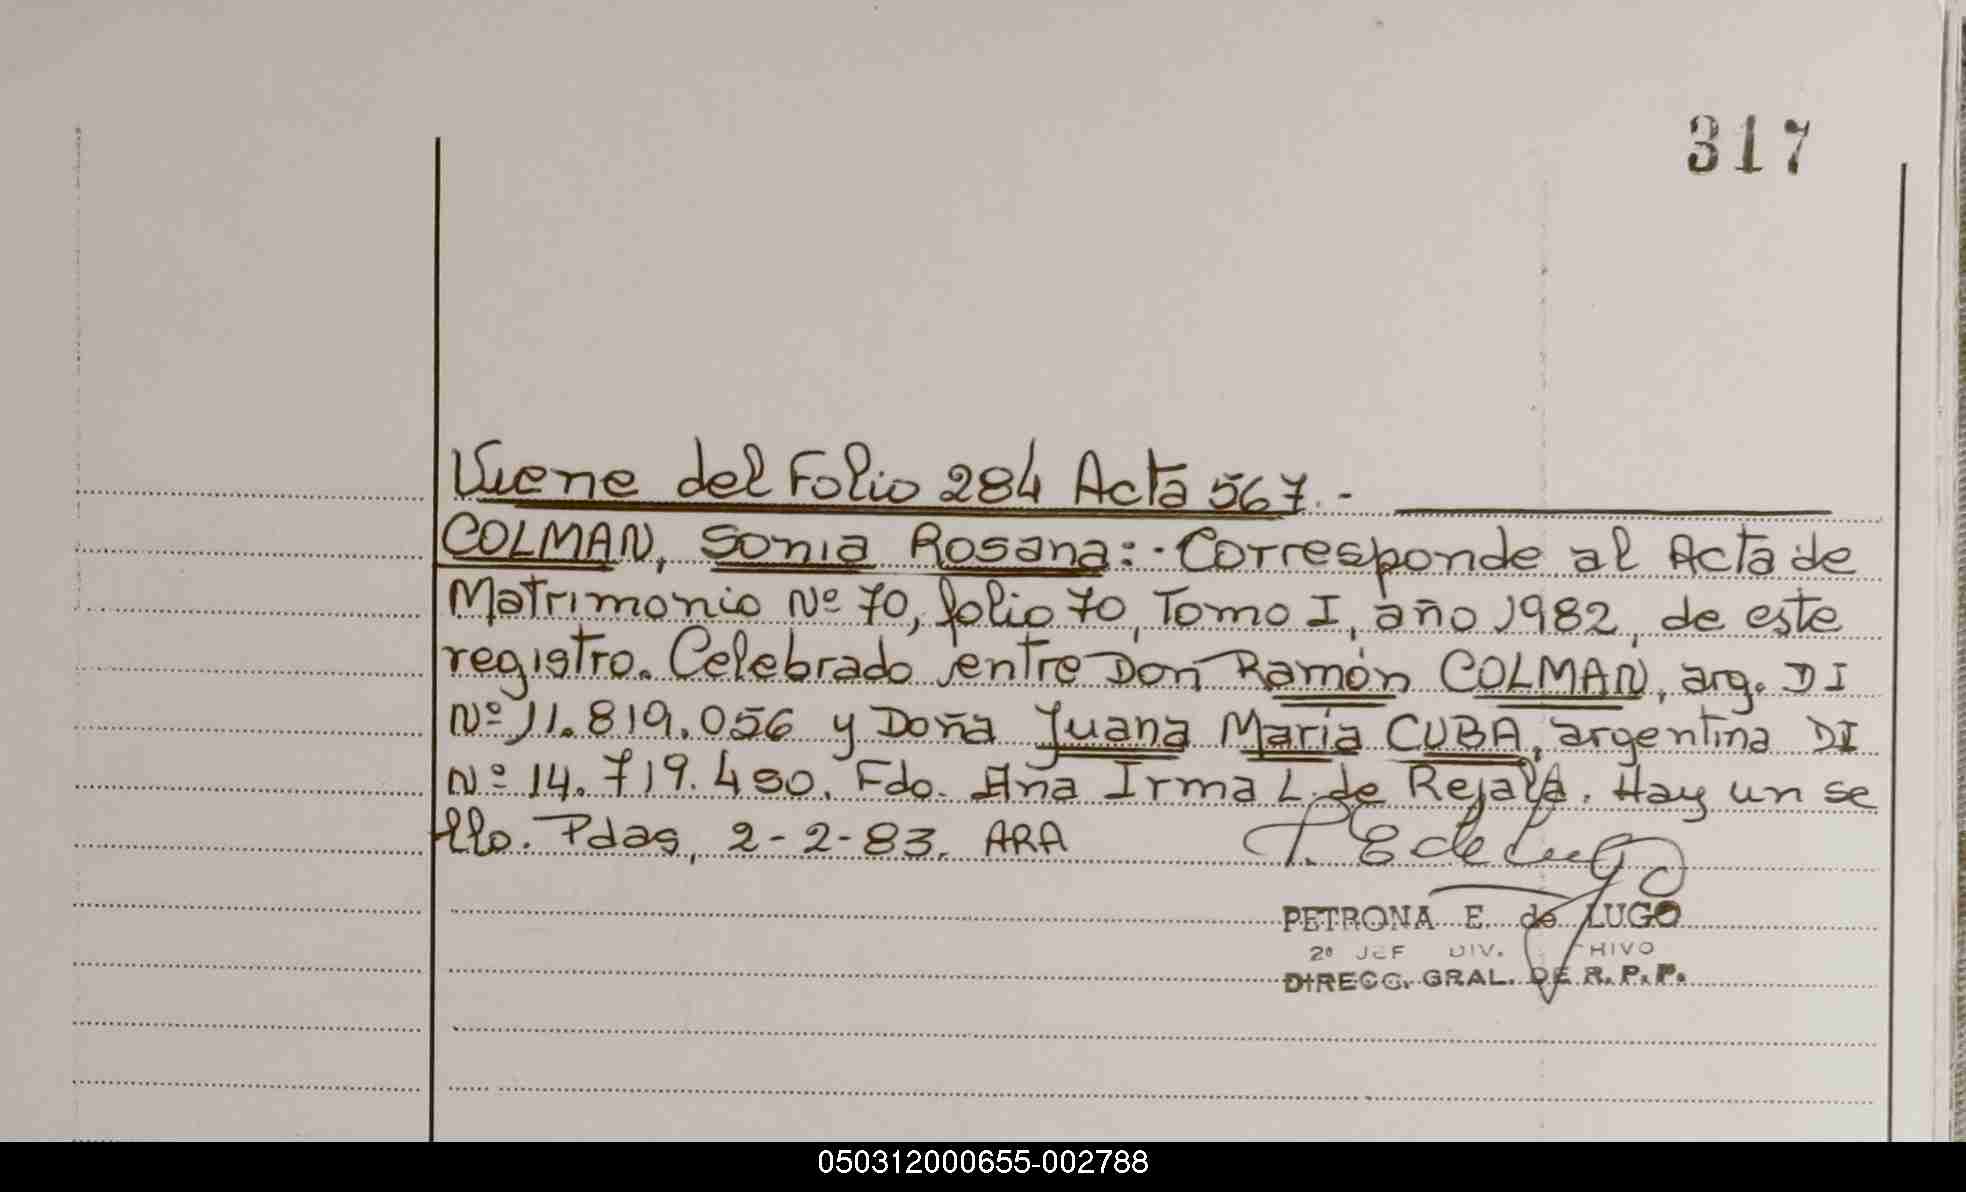 317
Viene del Folio 284 Acta 567.-
COLMAN, Sonia Rosana:.Corresponde al Acta de
Matrimonio Nº 70, folio 70, Tomo I, año 1982, de este
registro. Celebrado entre Don Ramón COLMAN, arg. DI
Nº 11.819.056 y Doña Juana María CUBA, argentina DI
Nº 14.719.490. Fdo. Ana Irma L. de Rejala. Hay un se
llo. Pdas, 2-2-83. ARA
P. E de Lugo
PETRONA E. de LUGO
2º JEF DIV. HIVO
DIRECC. GRAL. DE R. P. P.
050312000655-002788